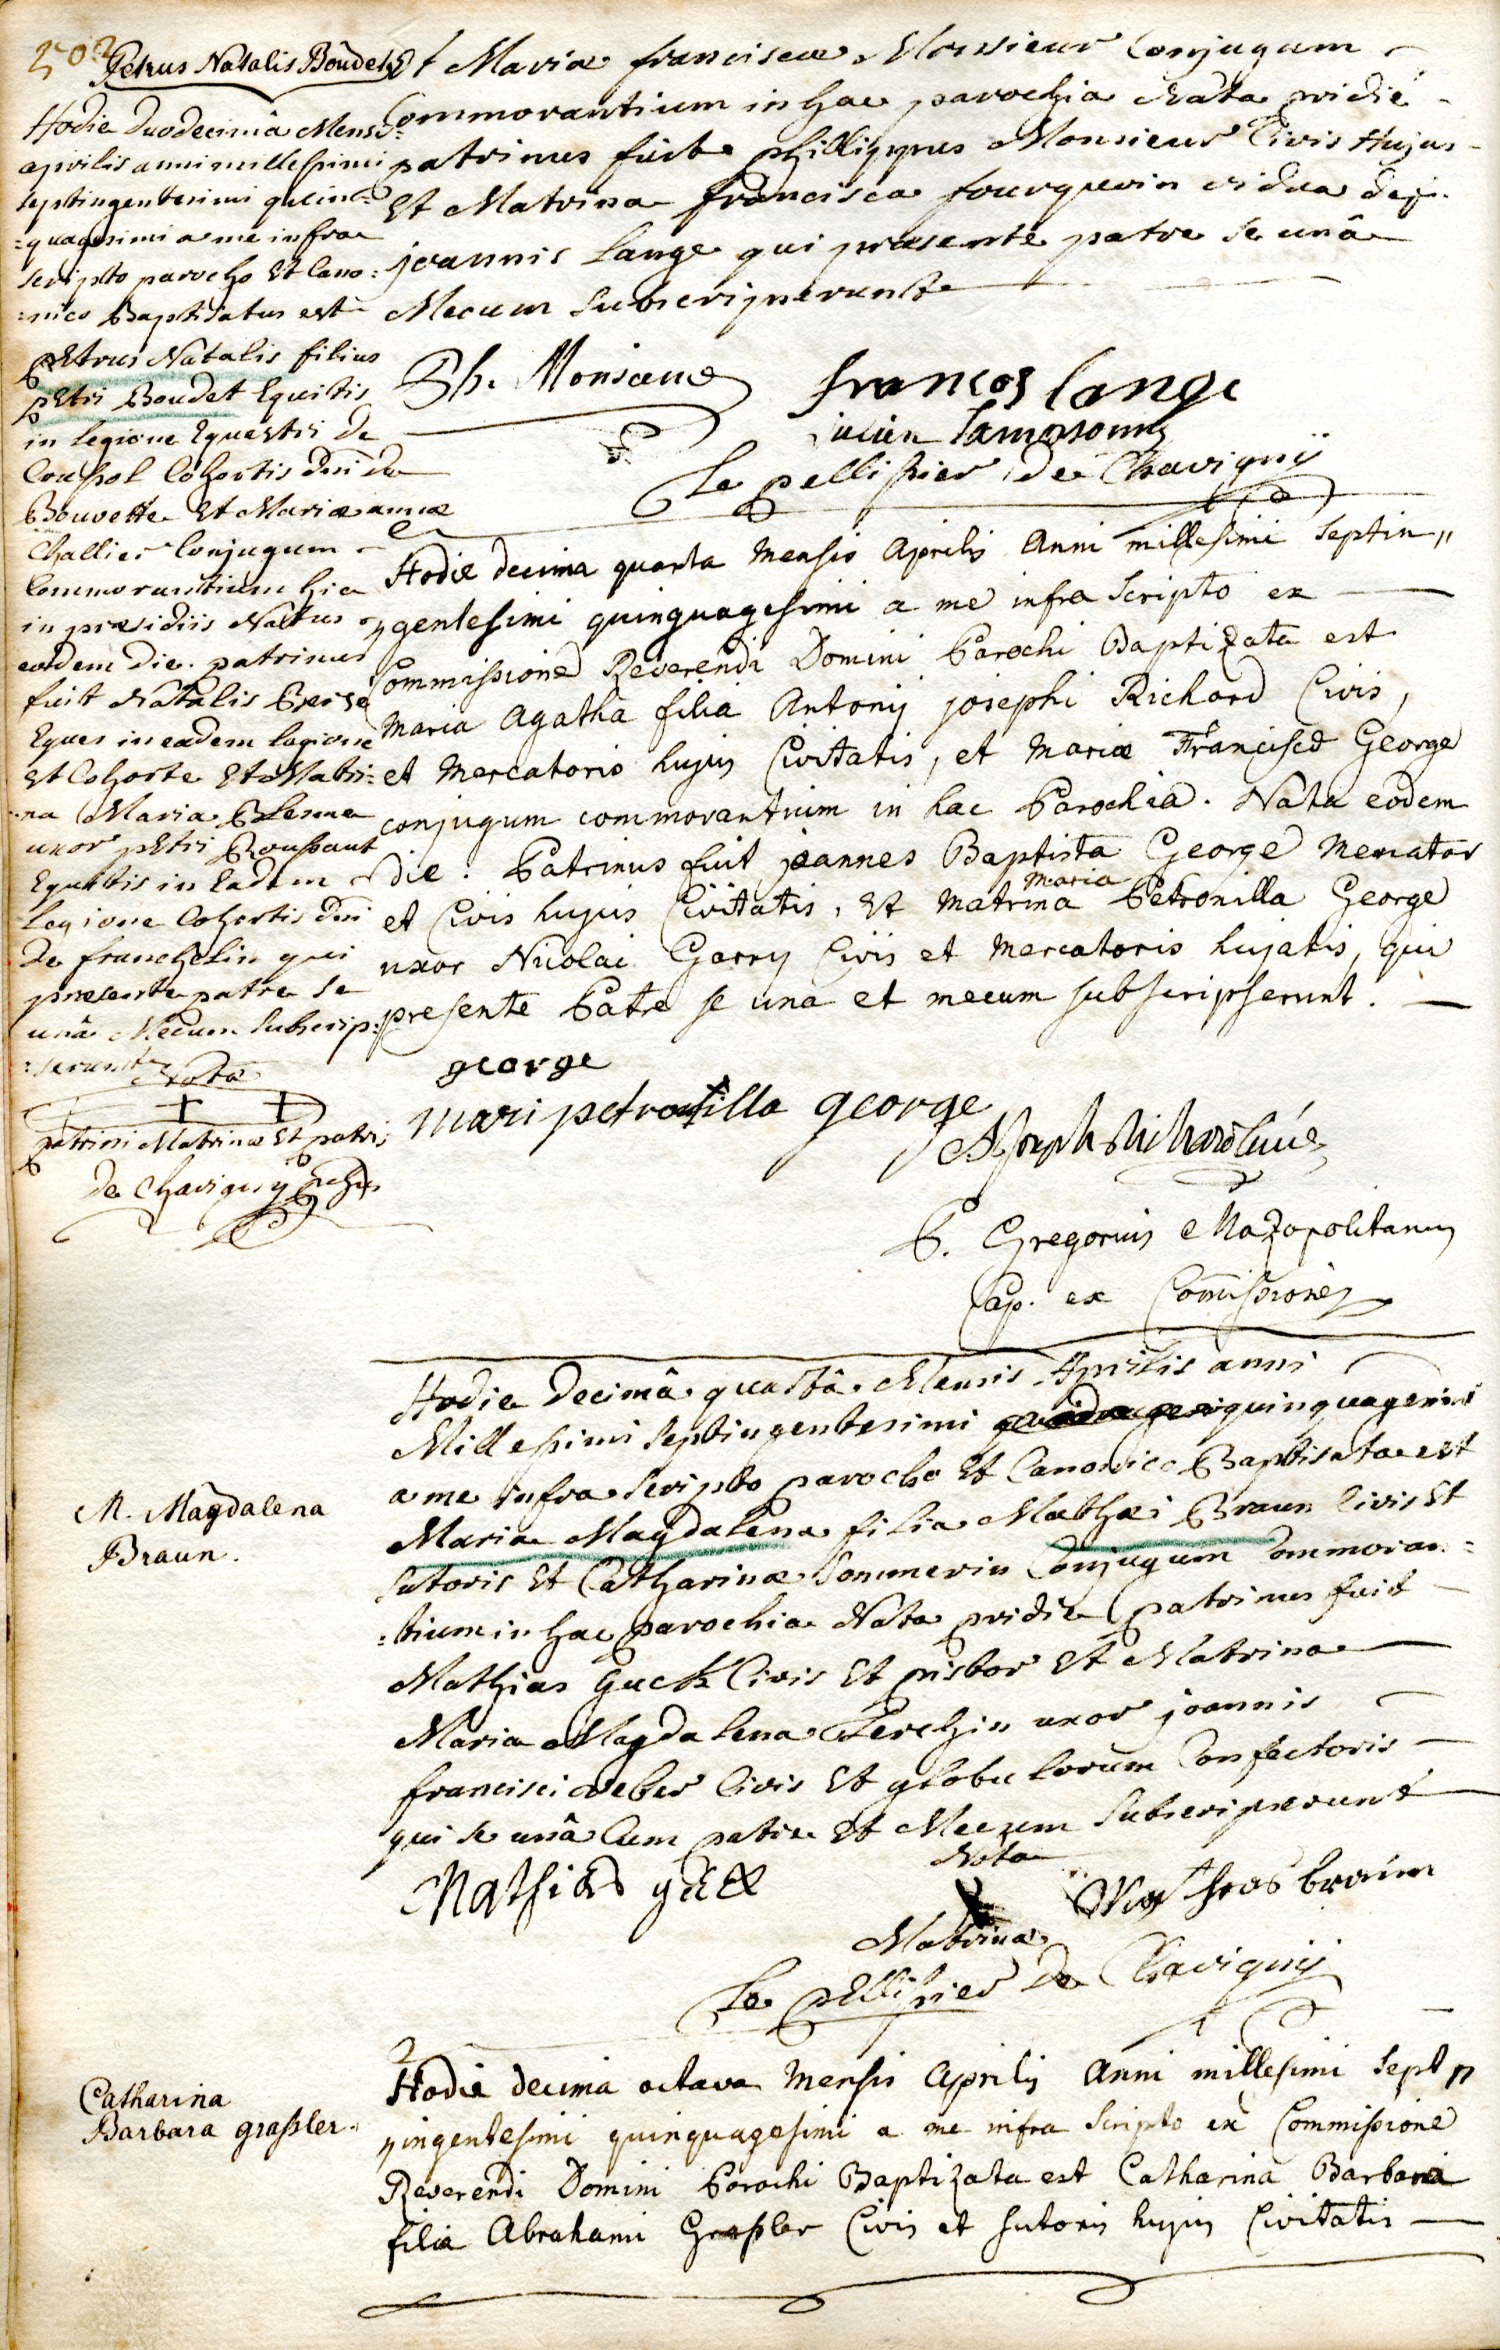 502
Petrus Natalis Boudet
Hodie duodecimâ Mensis
aprilis anni millesimi
septingentesimi quin=
=quagesimi a me infra
scripto parocho Et Cano=
=nico Baptisatus est
pEtrus Natalis filius
pEtri Boudet Equitis
in legione Equestri de
Cohortis dni de
Bouvette Et Mariæ annæ
Challier Conjugum
Commorantium hic
in præsidiis Natus
eodem die. patrinus
fuit Natalis
Eques in eadem legione
et Cohorte Et Matri=
=na Maria
uxor pEtri Roussaut
Equitis in Eadem
legione Cohortis dni
de franchelin qui
præsente patre se
unâ Mecum subscrip=
=serunt
Nota
+ +
patrini Matrinæ Et patris
de Chavigny
Et Mariæ franciscæ Monsieur Conjugum
Commorantium in hac parochia Nata pridie
patrinus fuit philippus Monsieur Civis Hujus
Et Matrina francisca fourquevin vidua def.
joannis Lange qui præsente patre se unâ
Mecum subscripserunt
Ph. Monsieue
francos lange
Le pellissier de Chavigny
Hodie decima quarta Mensis Aprilis Anni millesimi Septin„
„gentesimi quinquagesimi a me infra scripto ex
Commissione Reverendi Domini Parochi Baptizata est
Maria Agatha filia Antonij josephi Richard Civis,
et Mercatoris hujus Civitatis, et Mariæ Franciscæ George
conjugum commorantium in hac Parochia. Nata eodem
die. Patrinus fuit joannes Baptista George Mercator
et Civis hujus Civitatis, et Matrina Maria Petronilla George
uxor Nicolai Garry Civis et Mercatoris hujatis, qui
presente Patre se una et mecum subscripserunt.
george
mari petronilla george
P. Gregorius Mazopolitanus
Cap. ex Commissione
M. Magdalena
Braun.
Hodie Decimâ quartâ Mensis Aprilis anni
Millesimi septingentesimi quinquagesimi
a me infra scripto parocho Et Canonico Baptisata est
Maria Magdalena filia Mathæi Braun Civis Et
sutoris Et Catharinæ Sommerin Conjugum Commoran=
=tium in hac parochia Nata pridie patrinus fuit
Mathias Guck Civis Et pistor Et Matrina
Maria Magdalena Lerchin uxor joannis
francisci weber Civis Et globulorum Confectoris
qui se unâ Cum patre Et Mecum subscripserunt
Nota
Mathias guck
Mathias braun
Matrinæ
Le pellissier de Chavigny
Catharina
Barbara grassler.
Hodie decima octava Mensis Aprilis Anni millesimi Sept„
„ingentesimi quinquagesimi a me infra scripto ex Commissione
Reverendi Domini Parochi Baptizata est Catharina Barbara
filia Abrahami Grassler Civis et Sutoris hujus Civitatis